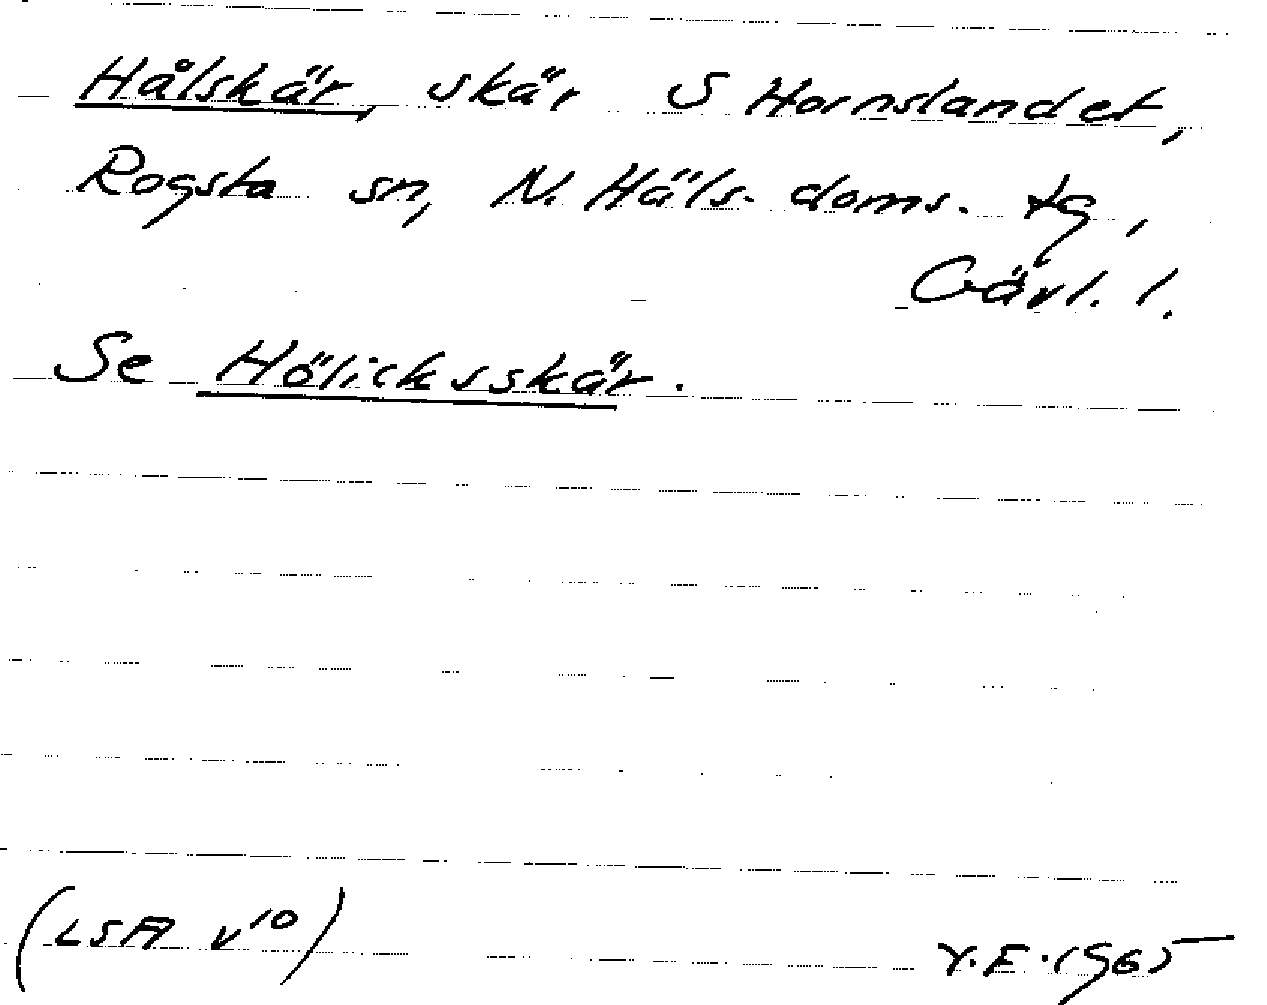 Hålskär, skär S Hornslandet,
Rogsta sn, N. Häls. doms. tg,
Gävl. l.
Se Hölicksskär.
(LSA v10) Y.F. 1965